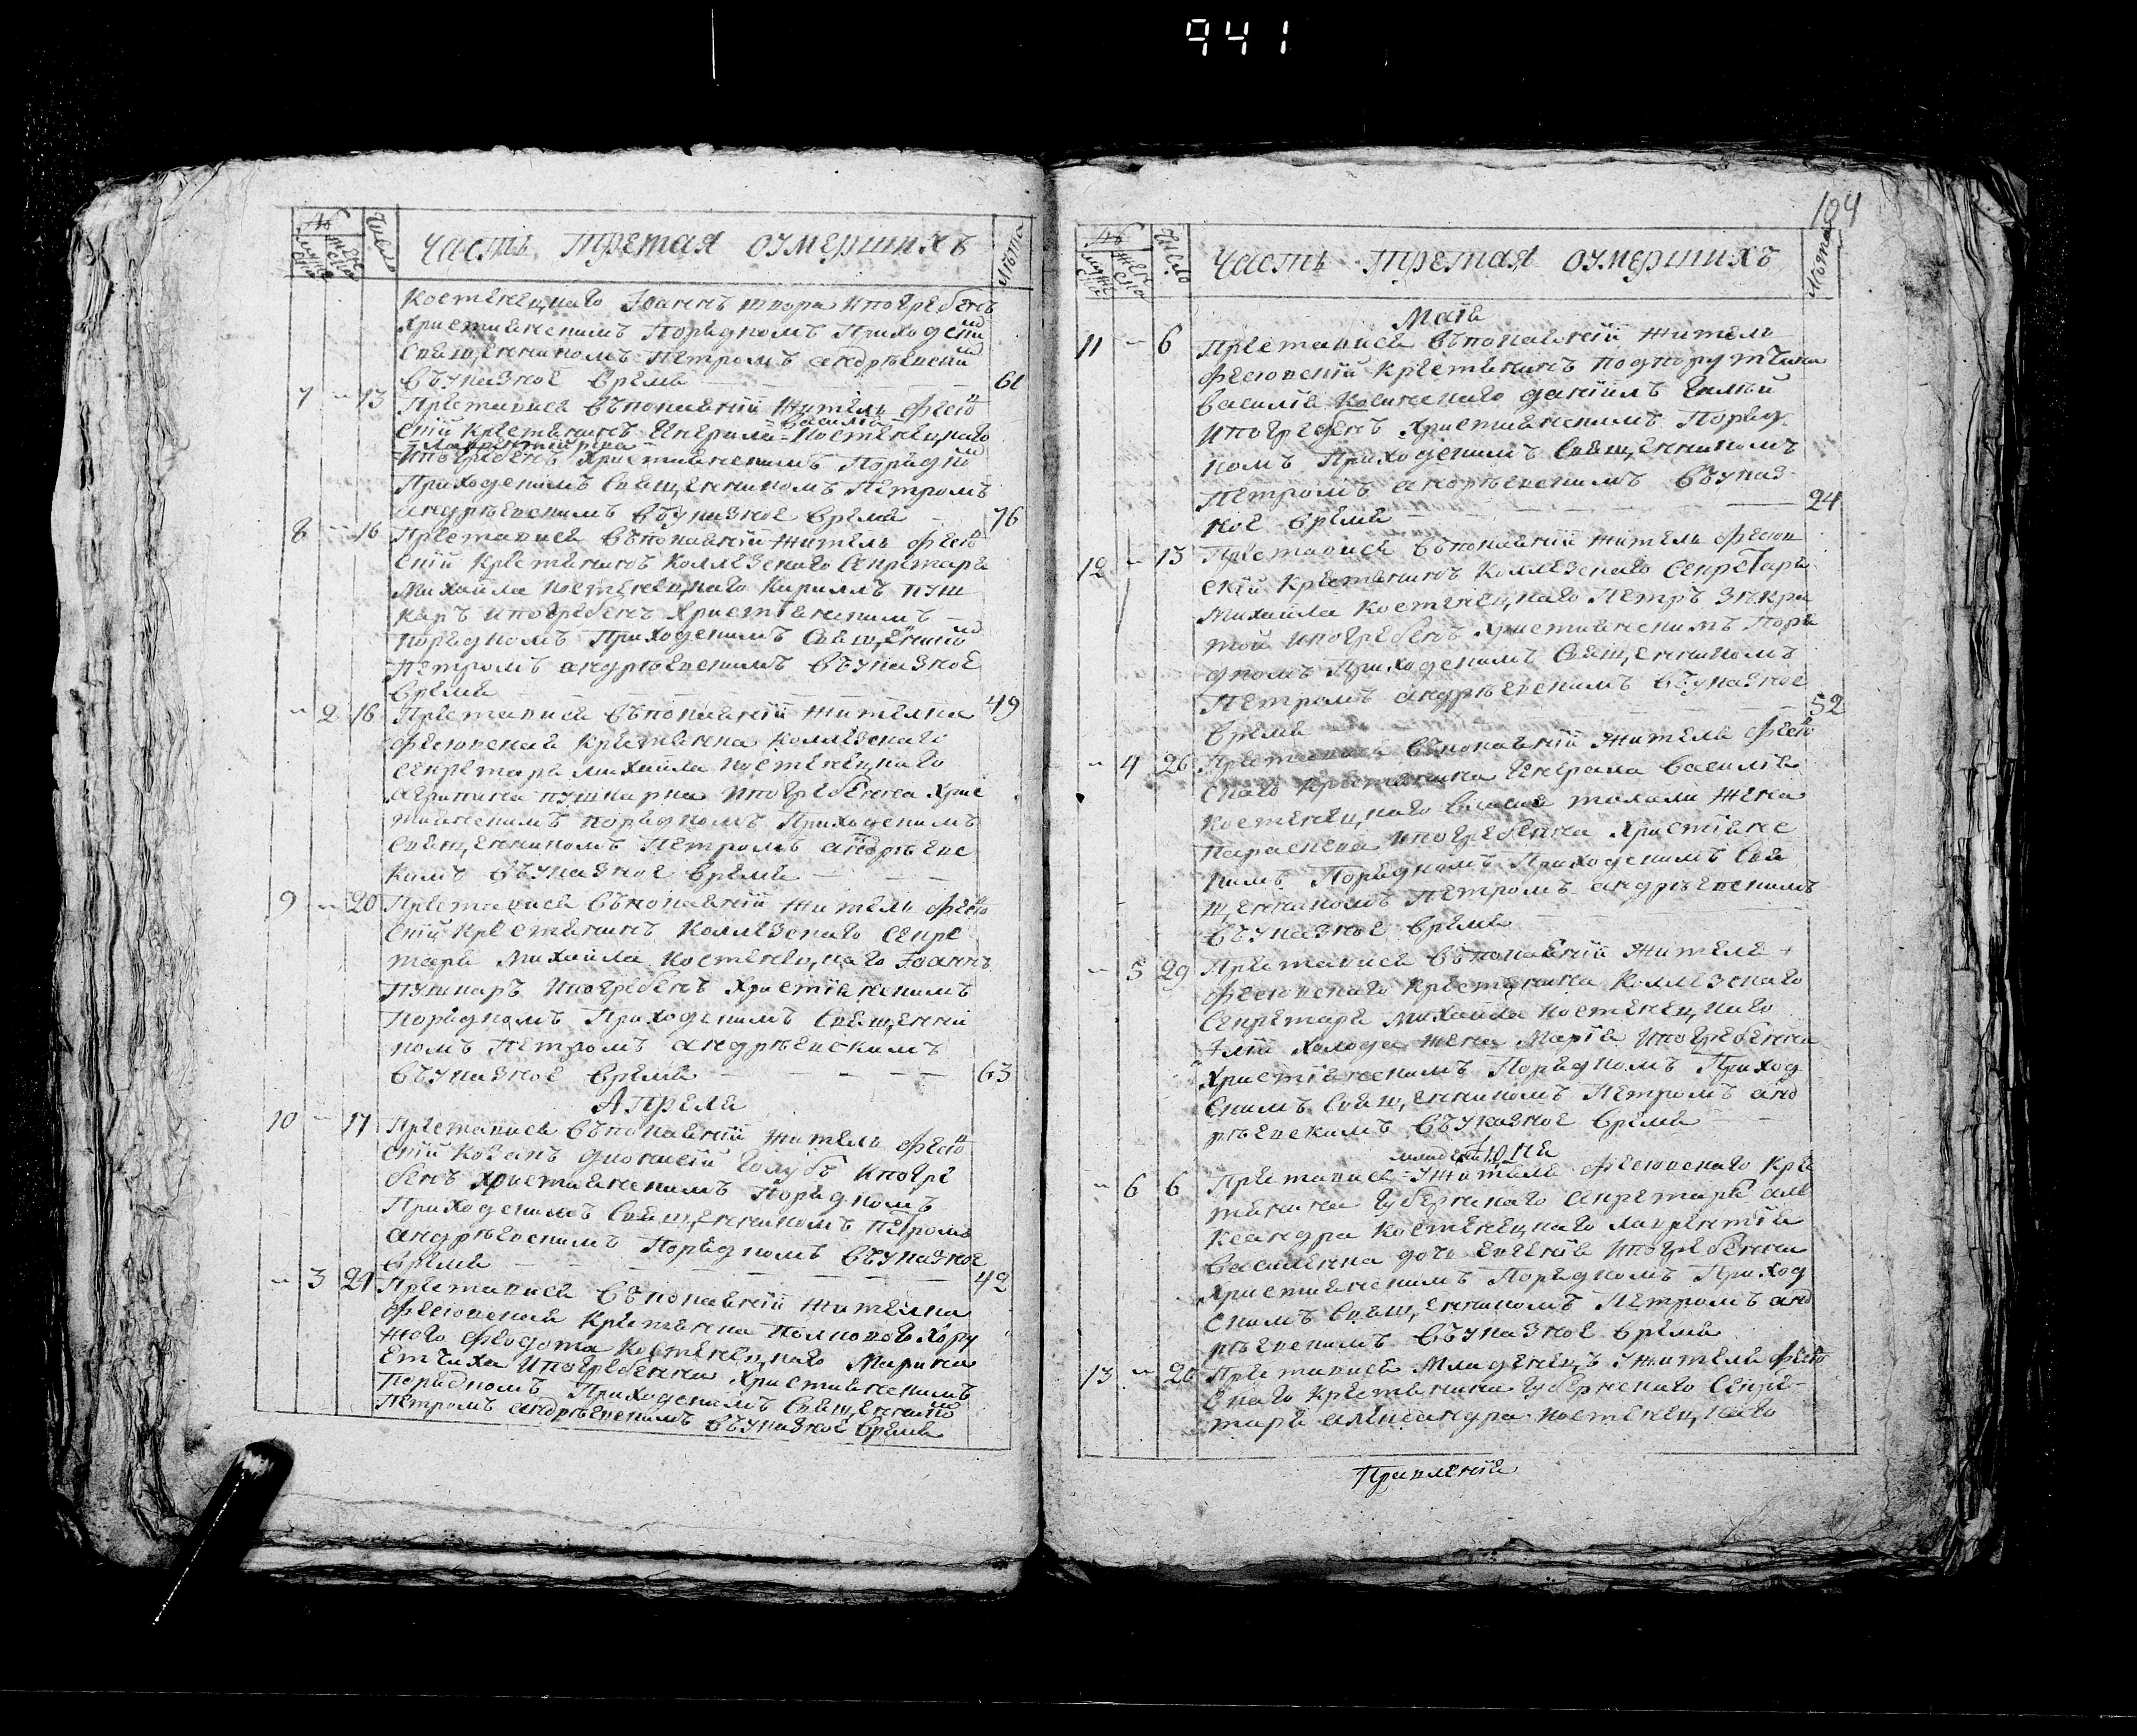 941
№
мужеска
женска
Число
Часть третая оумершихъ
Лѣта
Костенецкаго Іоаннъ шпора ипогребенъ
Християнскимъ Порядкомъ Приходски
Священникомъ Петромъ андрѣевски
въуказное время
61
7 13 Преставися въпокаяніи житель фесю
скій крестянинъ Генерала Василия Костенецкаго
ипогребенъ Християнскимъ Порядко
Приходскимъ Священникомъ Петромъ
андрѣевскимъ въуказное время
76
8 16 Преставися въпокаяніи житель фесю
скій крестянинъ Коллезскаго Секретаря
Михайла костенецкаго Кириллъ пуш
каръ ипогребенъ Християнскимъ
порядкомъ Приходскимъ Священнико
Петромъ андрѣевскимъ въуказное
время
49
2 16 Преставися въпокаяніи жителка
фесювская крестянка коллезскаго
секретаря михайла костенецкаго
Агрипина пушкарка ипогребенна Хрис
тиянскимъ порядкомъ Приходскимъ
Священникомъ Петромъ андрѣевс
кимъ въуказное время
9 20 Преставися въпокаяніи житель фесю
скій крестянинъ Коллезскаго Секре
таря михайла костенецкаго Іоаннъ
Пушкаръ ипогребенъ Християнскимъ
Порядкомъ Приходскимъ Священни
комъ Петромъ андрѣевскимъ
въуказное время
63
Апреля
10 17 Преставися въпокаяніи житель фесю
скій козакъ дионисій Голубъ ипогре
бенъ християнскимъ Порядкомъ
Приходскимъ Священникомъ Петромъ
андрѣевскимъ Порядкомъ въуказное
время
42
3 21 Преставися въпокаяніи жителка
фесювская крестянка Полковаго Хору
жего федота Костенецкаго Марина
ипогребенна Християнскимъ
Порядкомъ Приходскимъ Священнико
Петромъ андрѣевскимъ въуказное время
104
№
мужеска
женска
Число
Часть третая оумершихъ
Лѣта
Маія
11 6 Преставися въпокаяніи житель
фесювскій крестянинъ подпорутчика
василія Косинскаго даніилъ
ипогребенъ Християнскимъ Поряд
комъ Приходскимъ Священникомъ
Петромъ андрѣевскимъ въуказ
ное время
24
12 13 Преставися въпокаяніи житель фесюв
скій крестянинъ Коллезскаго Секретаря
михайла костенецкаго Петръ
ипогребенъ Християнскимъ Поря
дкомъ Приходскимъ Священникомъ
Петромъ андрѣевскимъ въуказное
время
52
4 26 Преставися въпокаяніи жителя фесю
скаго крестянина Генерала василія
костенецкаго жена
параскева ипогребенна Християнс
кимъ Порядкомъ Приходскимъ Свя
щенникомъ Петромъ андрѣевскимъ
въуказное время
5 29 Преставися въпокаяніи жителя
фесювскаго крестянина Коллезскаго
Секретаря михайла костенецкаго
Іллій холода жена Марія ипогребенна
Християнскимъ Порядкомъ Приход
скимъ Священникомъ Петромъ анд
рѣевскимъ въуказное время
Іюня
6 6 Преставися Ужителя фесювскаго кре
стянина Губернскаго секретаря але
ксандра костенецкаго лаврентія
дочь Евгенія ипогребенна
Християнскимъ Порядкомъ Приход
скимъ Священникомъ Петромъ анд
рѣевскимъ въуказное время
13 20 Преставися младенецъ Ужителя фесю
скаго крестянина Губернскаго Секре
таря александра костенецкаго